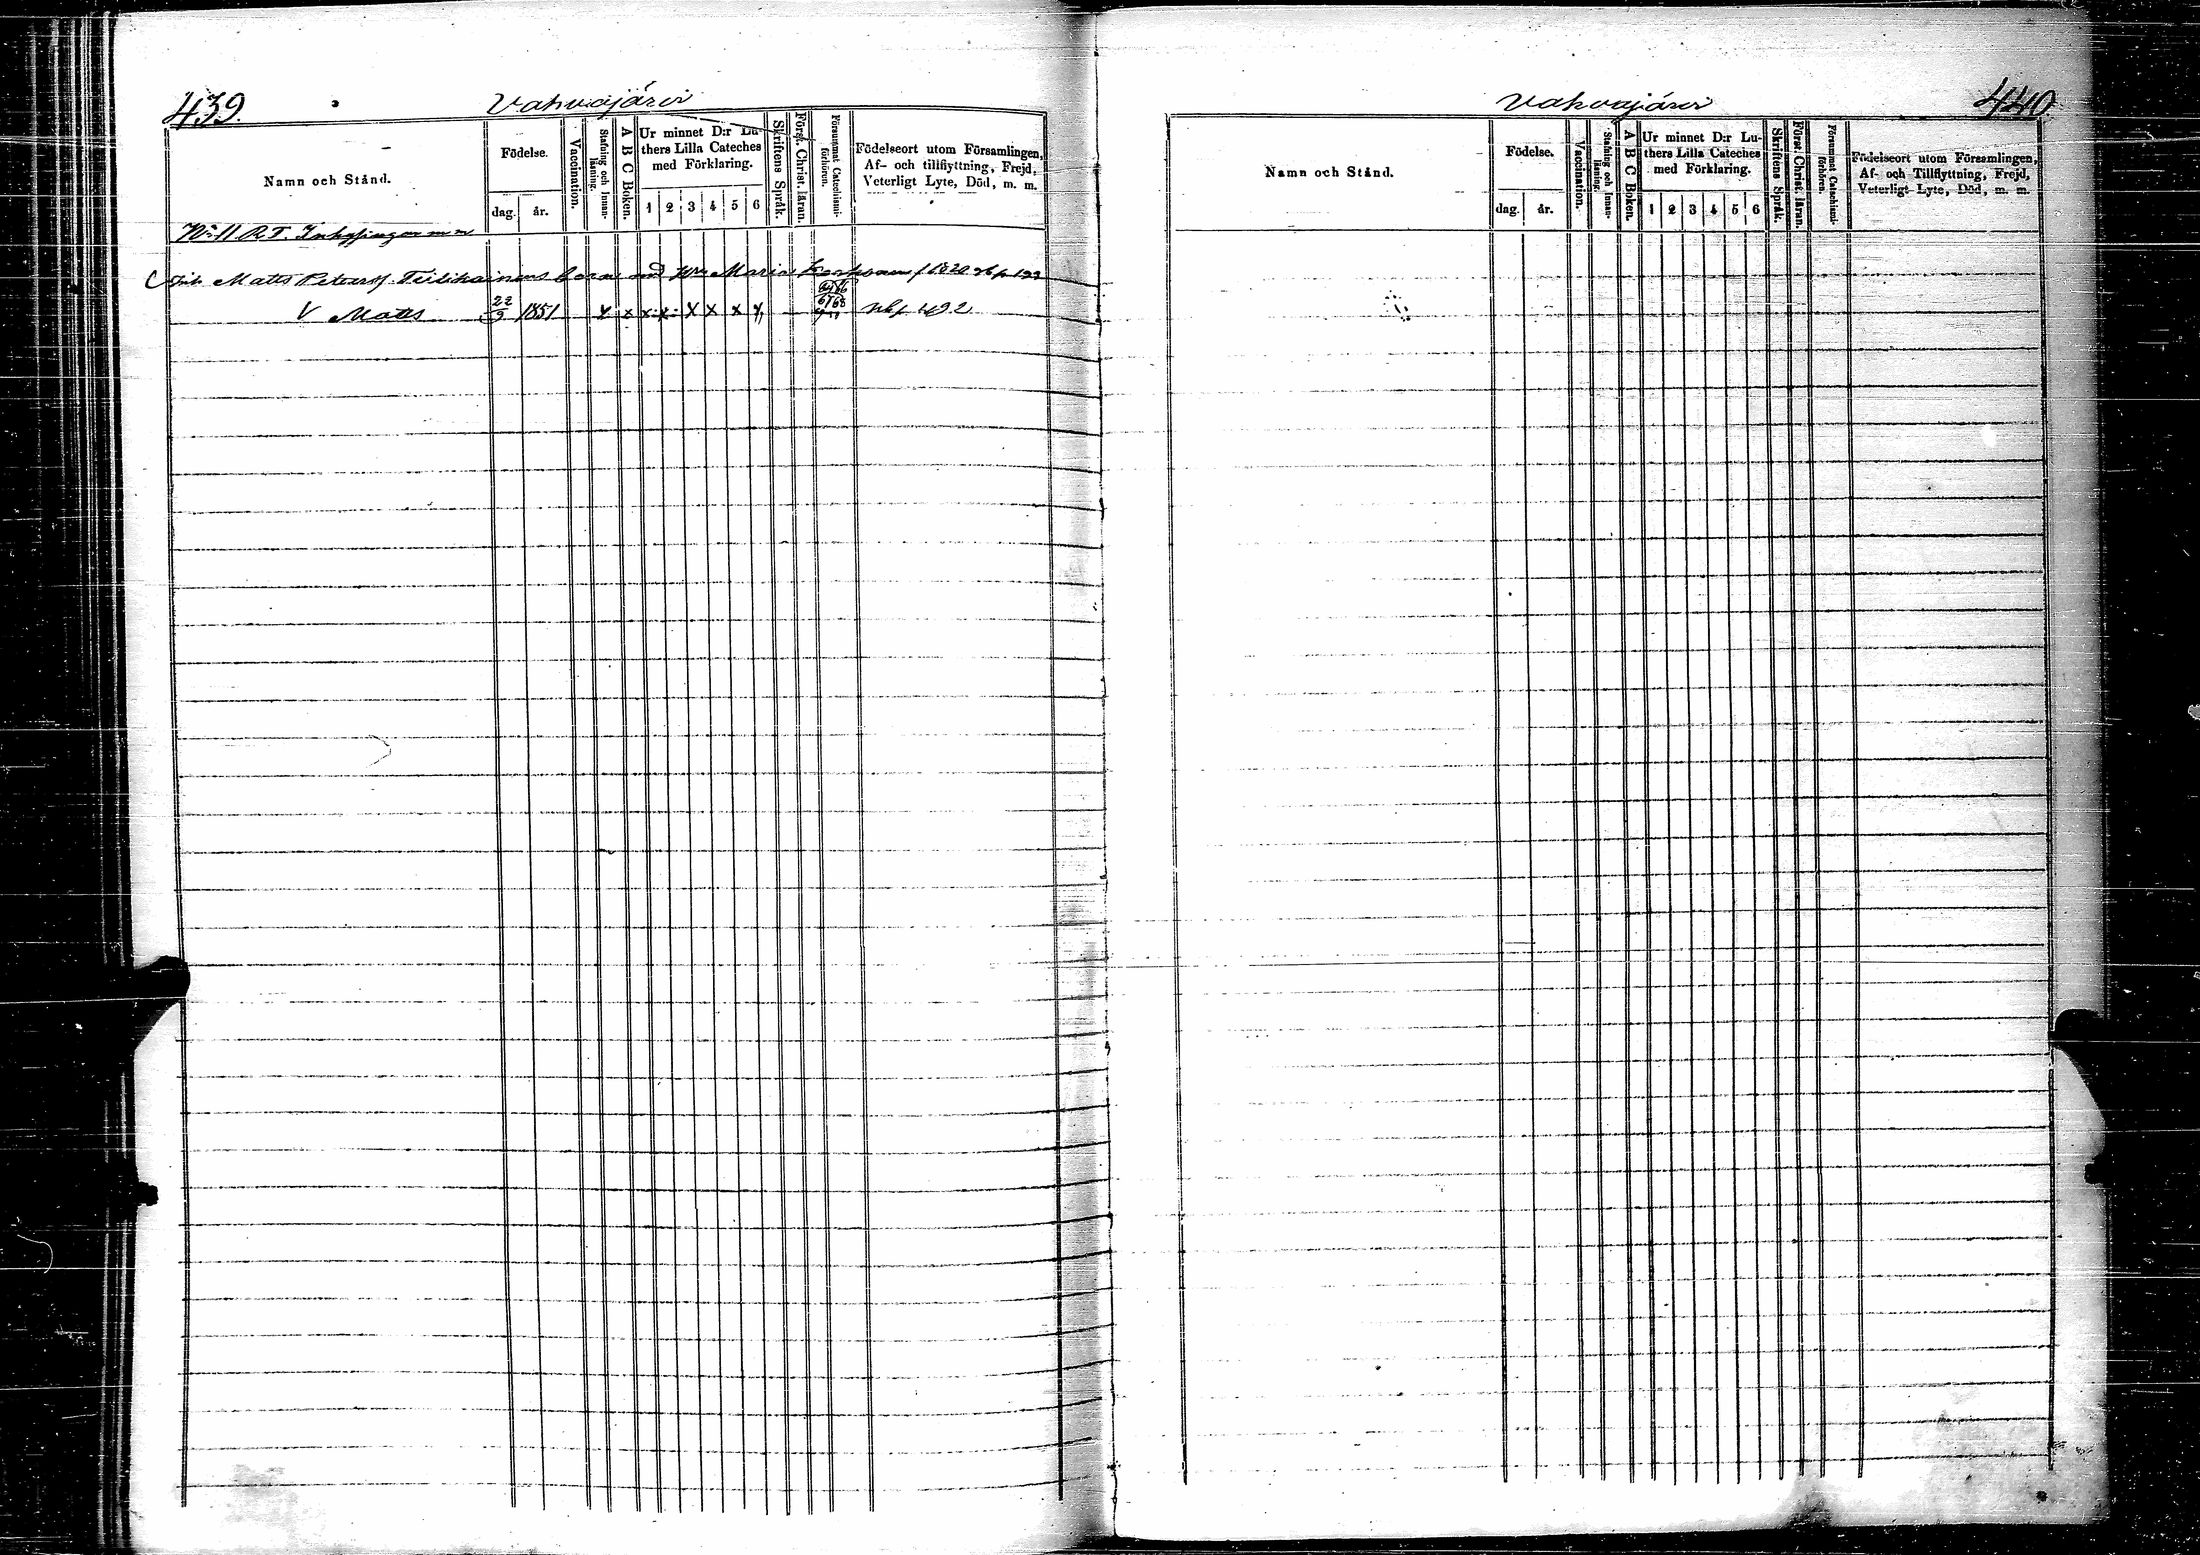 439.
Vahvajärvi
Namn och Stånd.
Födelse.
dag.
år.
Vaccination.
Stafning och Innan-
läsning.
A B C Boken.
Ur minnet D:r Lu-
thers Lilla Cateches
med Förklaring.
1 2 3 4 5 6
Skriftens Språk.
Först. Christ. läran.
Försummat Catechismi-
förhören.
Födelseort utom Församlingen,
Af- och tillflyttning, Frejd,
Veterligt Lyte, Död, m. m.
No 11 R.T. Inhysingar m m
Inh. Matts Peterss. Tiilikainens barn med Maria
V Matts 22/9 1851 x x x x x x x x 67/68 492
Vahvajärvi
440
Namn och Stånd.
Födelse.
dag.
år.
Vaccination.
Stafning och Innan-
läsning.
A B C Boken.
Ur minnet D:r Lu-
thers Lilla Cateches
med Förklaring.
1 2 3 4 5 6
Skriftens Språk.
Först Christ. läran.
Försummat Catechismi-
förhören.
Födelseort utom Församlingen,
Af- och Tillflyttning, Frejd,
Veterligt Lyte, Död, m. m.